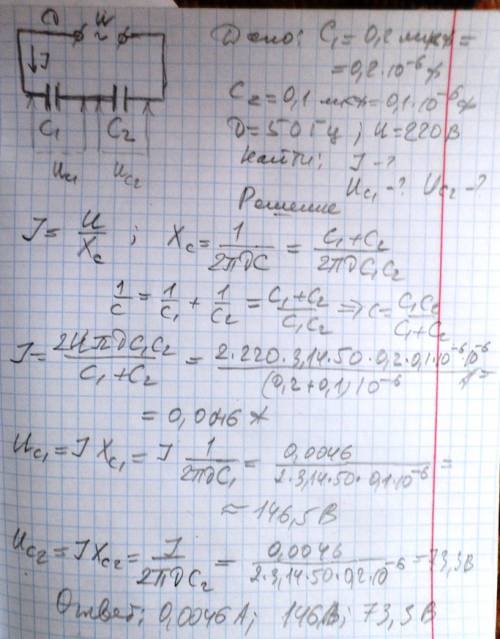 ν U
I
C₁ C₂
U_C1 U_C2
Дано: C₁ = 0,2 мкФ =
= 0,2·10⁻⁶ Ф
C₂ = 0,1 мкФ = 0,1·10⁻⁶ Ф
ν = 50 Гц; U = 220 В
Найти: I - ?
U_C1 - ? U_C2 - ?
Решение
I = U/X_C; X_C = 1/(2πνC) = (C₁+C₂)/(2πνC₁C₂)
1/C = 1/C₁ + 1/C₂ = (C₁+C₂)/(C₁C₂) ⇒ C = C₁C₂/(C₁+C₂)
I = 2UπνC₁C₂/(C₁+C₂) = 2·220·3,14·50·0,2·0,1·10⁻⁶·10⁻⁶/((0,2+0,1)10⁻⁶) =
= 0,0046 A
U_C1 = I X_C1 = I 1/(2πνC₁) = 0,0046/(2·3,14·50·0,1·10⁻⁶) =
≈ 146,5 В
U_C2 = I X_C2 = I/(2πνC₂) = 0,0046/(2·3,14·50·0,2·10⁻⁶) = 73,3 В
Ответ: 0,0046 А; 146 В; 73,3 В